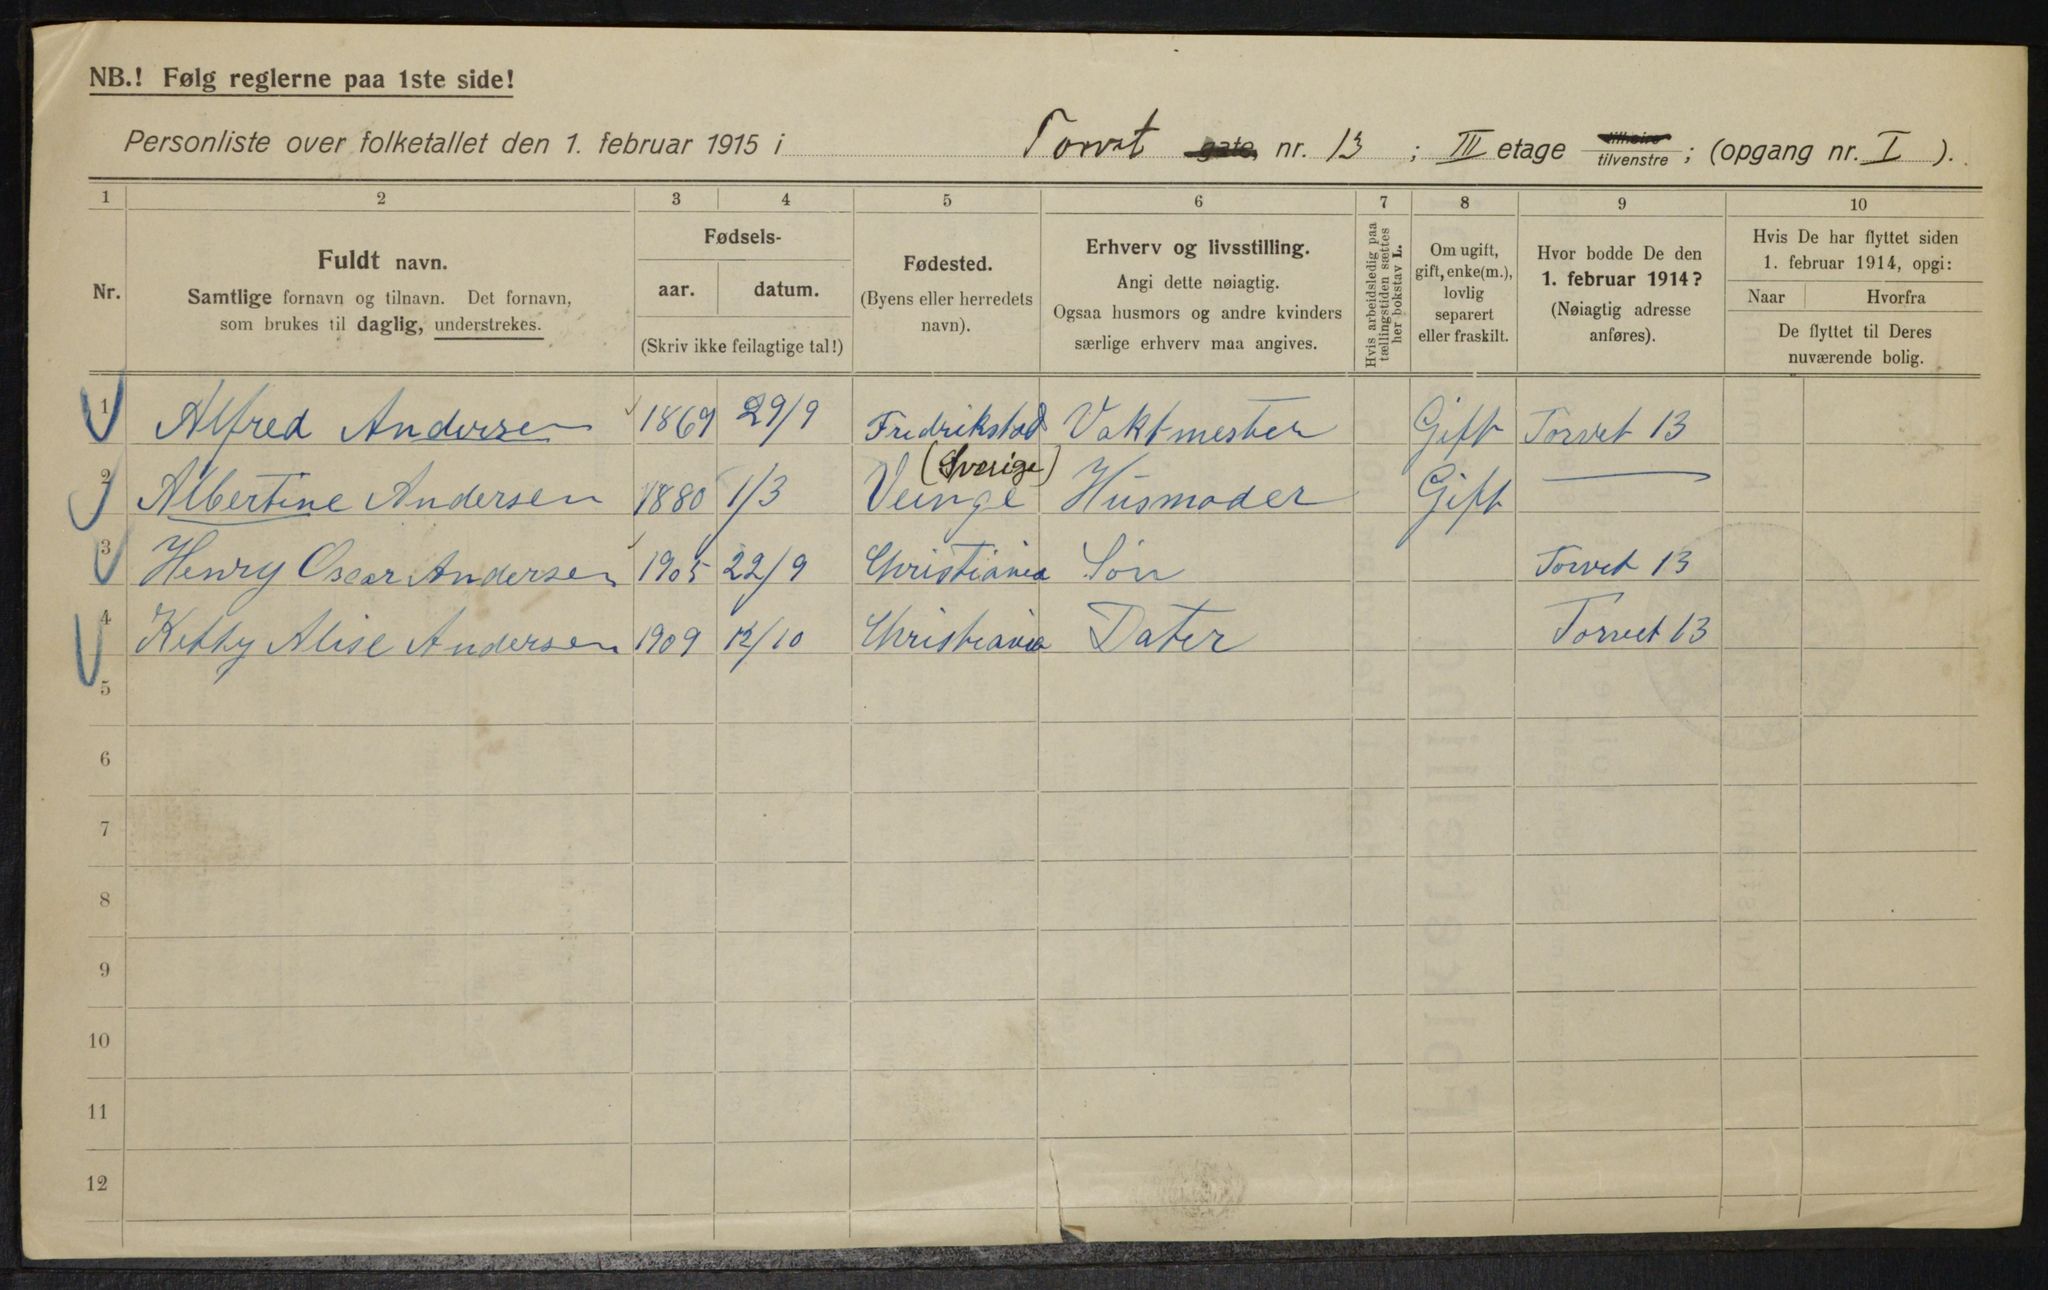 NB.! Følg reglerne paa 1ste side!
Personliste over folketallet den 1. februar 1915 i Torvet gate, nr. 13 ; III etage tilhøire tilvenstre ; (opgang nr. I ).
1 2 3 4 5 6 7 8 9 10
Nr.
Fuldt navn.
Samtlige fornavn og tilnavn. Det fornavn,
som brukes til daglig, understrekes.
Fødsels-
aar. datum.
(Skriv ikke feilagtige tal!)
Fødested.
(Byens eller herredets
navn).
Erhverv og livsstilling.
Angi dette nøiagtig.
Ogsaa husmors og andre kvinders
særlige erhverv maa angives.
Hvis arbeidsledig paa
tællingstiden sættes
her bokstav L.
Om ugift,
gift, enke(m.),
lovlig
separert
eller fraskilt.
Hvor bodde De den
1. februar 1914?
(Nøiagtig adresse
anføres).
Hvis De har flyttet siden
1. februar 1914, opgi:
Naar Hvorfra
De flyttet til Deres
nuværende bolig.
1 Alfred Andersen 1869 29/9 Fredrikstad Vaktmester Gift Torvet 13
2 Albertine Andersen 1880 1/3 Veinge (Sverige) Husmoder Gift
3 Henry Oscar Andersen 1905 22/9 Christiania Søn Torvet 13
4 Ketty Alise Andersen 1909 12/10 Christiania Dater Torvet 13
5
6
7
8
9
10
11
12